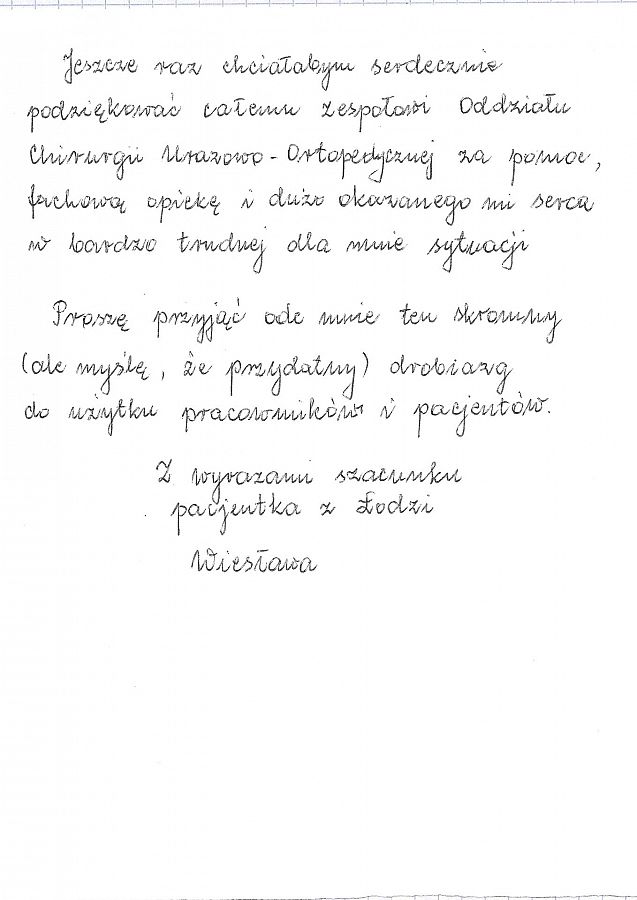 Jeszcze raz chciałabym serdecznie
podziękować całemu zespołowi Oddziału
Chirurgii Urazowo - Ortopedycznej za pomoc,
fachową opiekę i dużo okazanego mi serca
w bardzo trudnej dla mnie sytuacji
Proszę przyjąć ode mnie ten skromny
(ale myślę, że przydatny) drobiazg
do użytku pracowników i pacjentów.
Z wyrazami szacunku
pacjentka z Łodzi
Wiesława